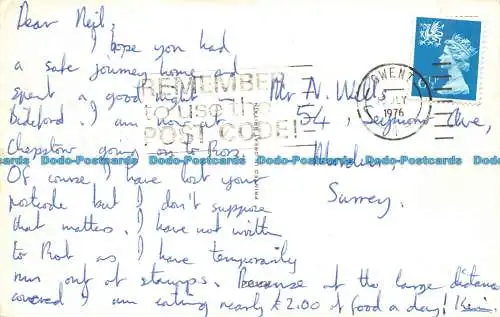 Dear Neil,
I hope you had
a safe journey home and
spent a good night
Bideford. I am now at
Chepstow going on to Ross
Of course I have lost your
postcode but I don't suppose
that matters. I have not written
to as I have temporarily
run out of stamps. Because of the large distance
covered I am eating nearly £2.00 of food a day!
REMEMBER
to use the
POST CODE!
GWENT
5 JLY
1976
Mr N.
54, Seymour Ave,
Surrey.
Dodo-Postcards Dodo-Postcards Dodo-Postcards Dodo-Postcards Dodo-Postcards